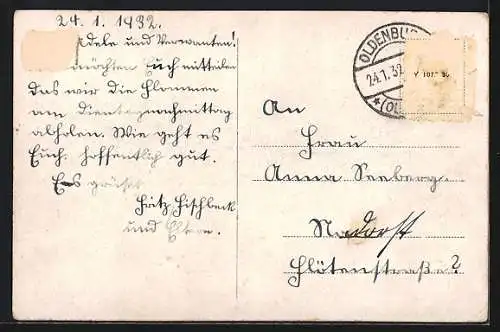 24. 1. 1932.
Adele und Verwanten!
möchten Euch mitteilen
das wir die Flommen
am Dienstagnachmittag
abholen. Wie geht es
Euch. hoffentlich gut.
Es grüßet
Fritz Fischbeck
und Eltern.
OLDENBU
24.1.32
*(OL
An
Frau
Anna Seeberg
Nadorst
Flötenstraße ?